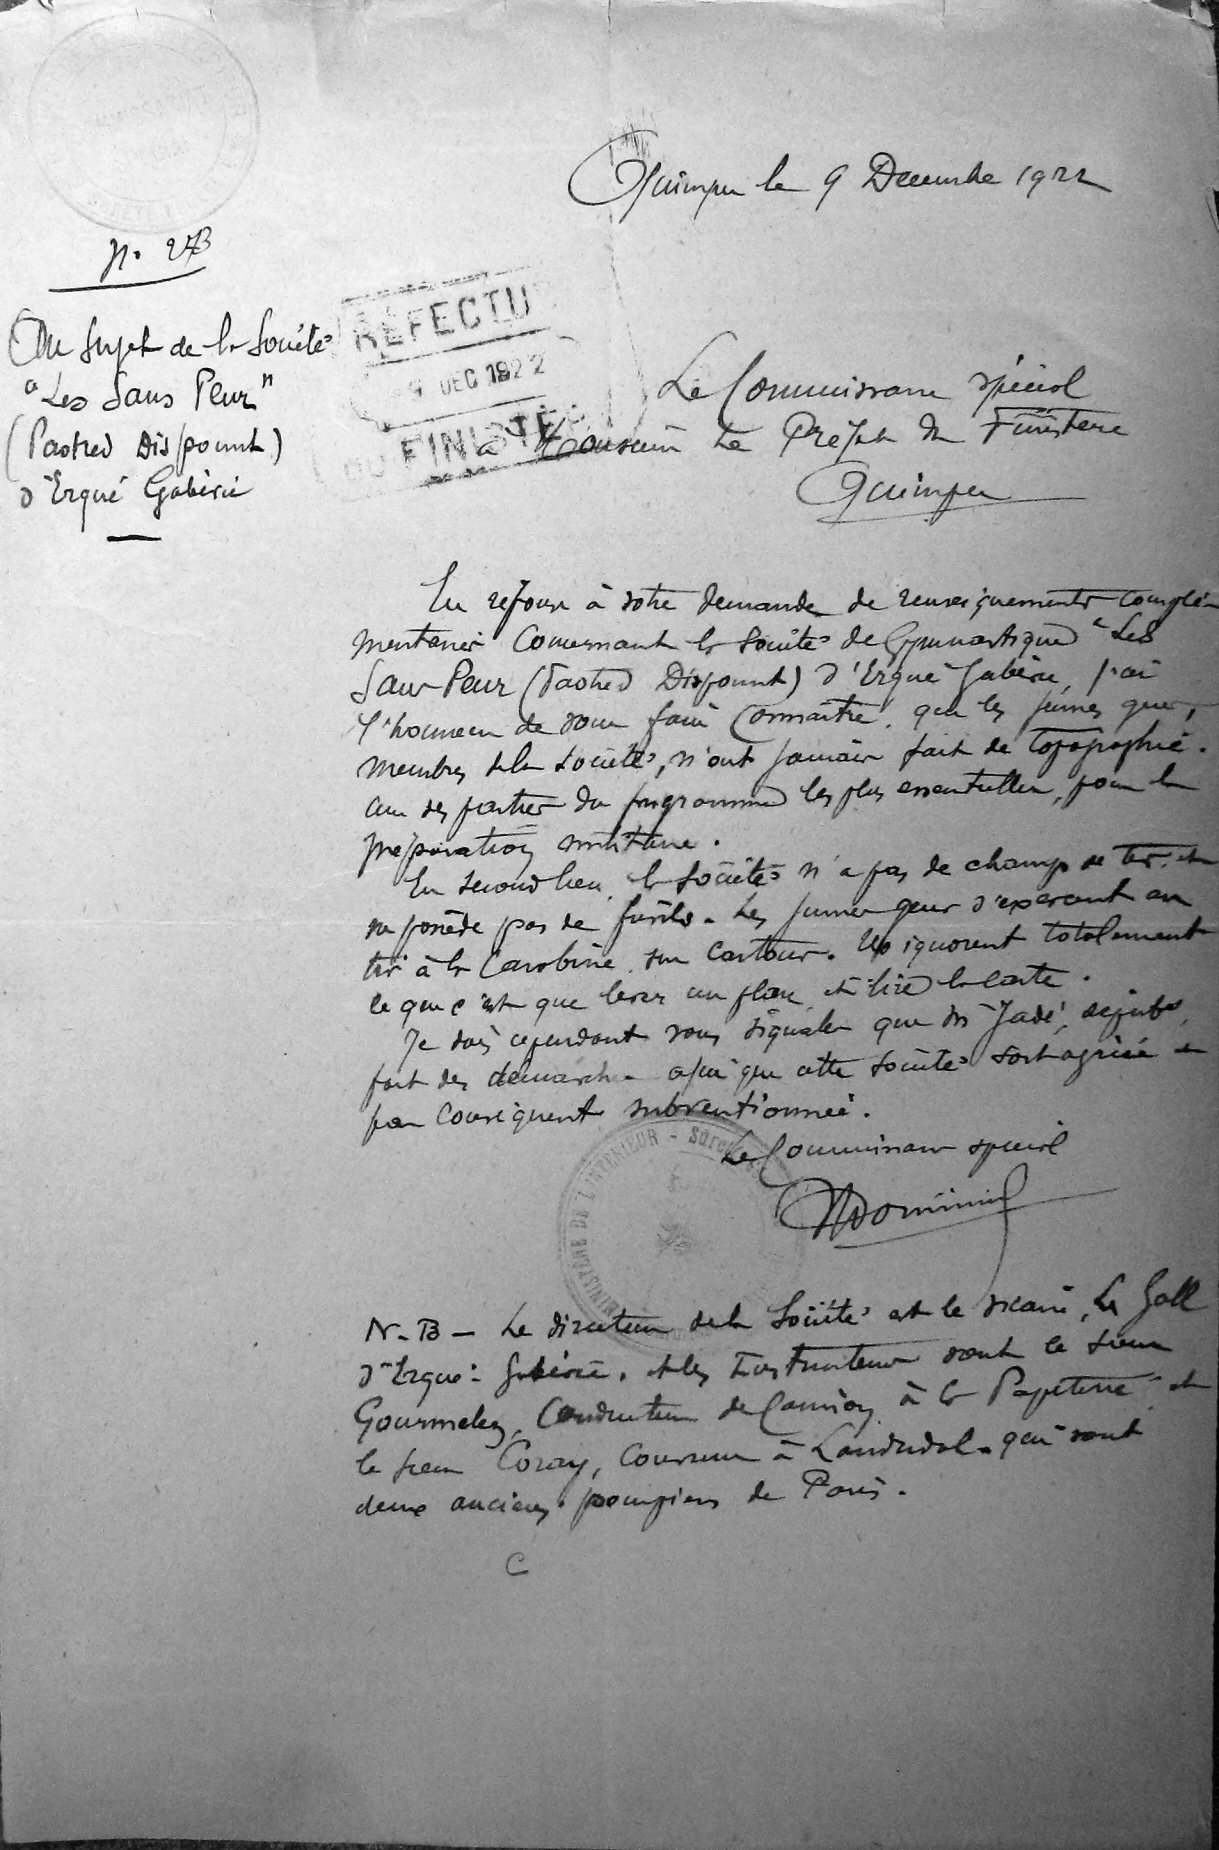 Quimper le 9 Decembre 1922
N° 273
Au sujet de la Société
"Les Sans Peur"
(Paotred Dispount)
d'Ergué Gabéric
REFECTU
9 DEC 1922
DU FINISTÈ
Le Commissaire spécial
à Monsieur Le Prefet du Finistere
Quimper
En reponse à votre demande de renseignements complé-
mentaires concernant la Société de Gymnastique "Les
Sans Peur (Paotred Dispount) d'Ergué Gabéric, j'ai
l'honneur de vous faire connaître que les jeunes gens,
membres de la Société, n'ont jamais fait de topographie.
une des parties du programme les plus essentielles, pour la
préparation militaire.
En second lieu, la Société n'a pas de champ de tir et
ne possède pas de fusils. Les jeunes gens s'exercent au
tir à la Carabine sur cartons. Ils ignorent totalement
ce que c'est que lever un plan et lire la carte.
Je dois cependant vous signaler que Mr Jadé, député,
fait des démarches afin que cette Société soit agréée et
par conséquent subventionnée.
Le Commissaire spécial
MINISTERE DE L'INTERIEUR - Sûreté
N.B - Le directeur de la Société est le vicaire Le Gall
d'Ergué-Gabéric. et les Instructeurs sont le sieur
Gourmelen, Conducteur de Camion à la Papeterie et
le sieur Coray, couvreur à Landudal. qui sont
deux anciens pompiers de Paris.
C